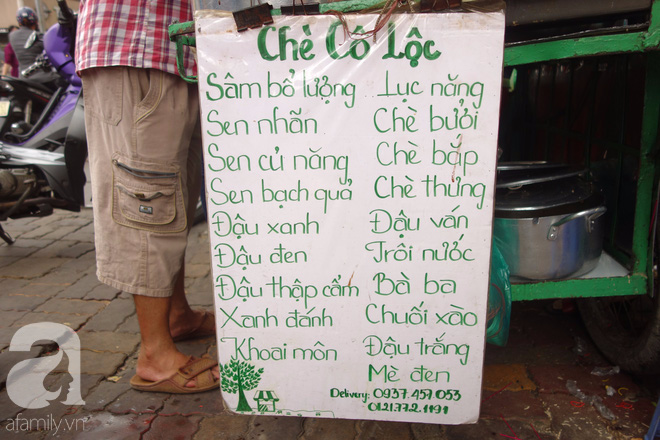 Chè Cô Lộc
Sâm bổ lượng
Sen nhãn
Sen củ năng
Sen bạch quả
Đậu xanh
Đậu đen
Đậu thập cẩm
Xanh đánh
Khoai môn
Lục năng
Chè bưởi
Chè bắp
Chè thưng
Đậu ván
Trôi nước
Bà ba
Chuối xào
Đậu trắng
Mè đen
Delivery: 0937.457.053
01213.72.1191
afamily.vn